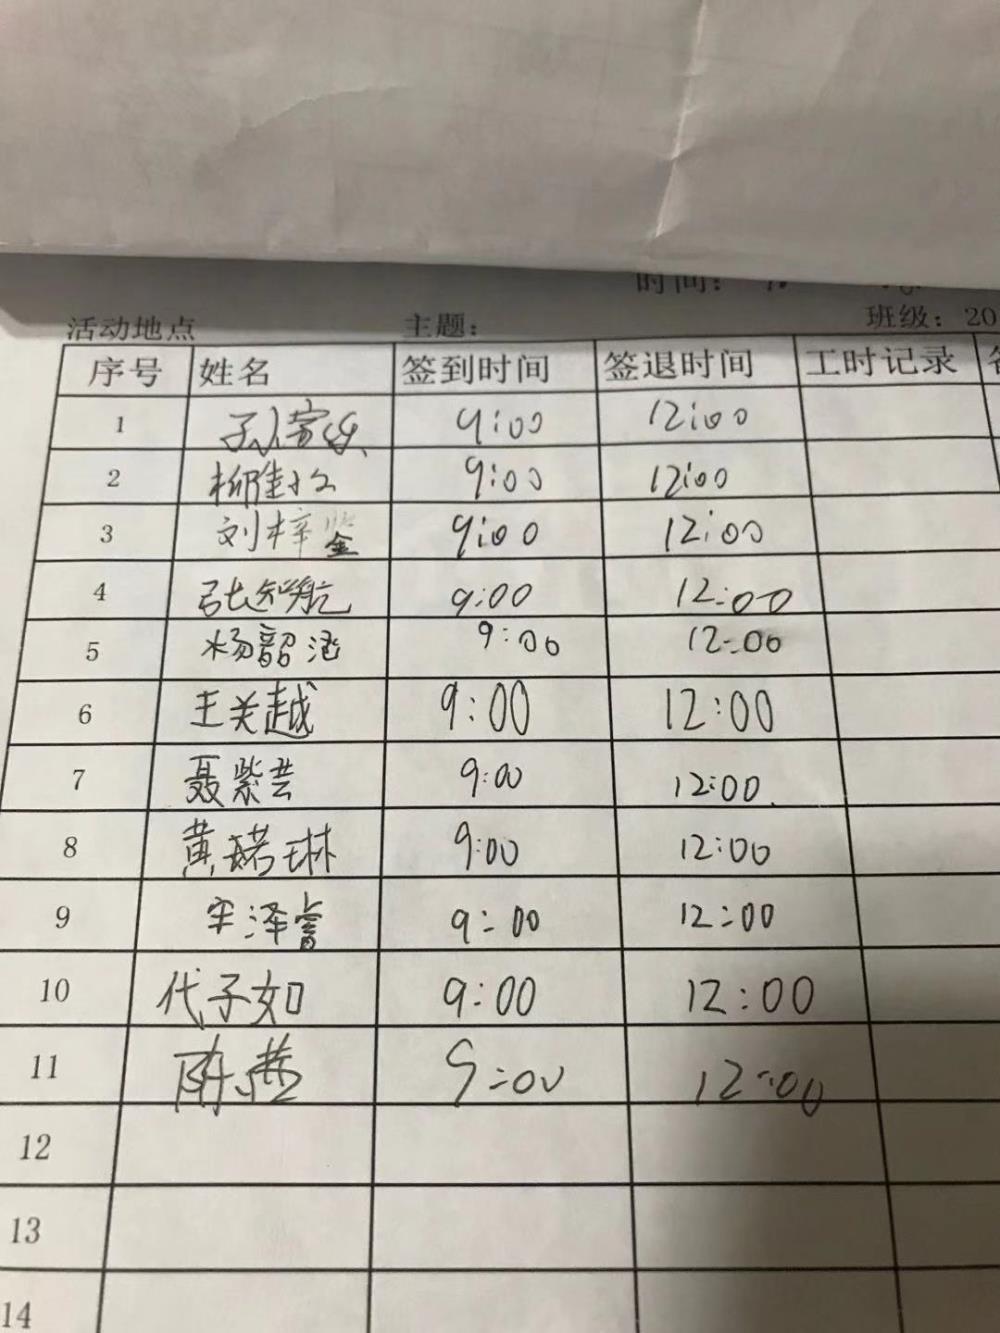 时间:
活动地点 主题: 班级: 20
序号 姓名 签到时间 签退时间 工时记录
1 9:00 12:00
2 9:00 12:00
3 刘梓鉴 9:00 12:00
4 张智航 9:00 12:00
5 杨韶涵 9:00 12:00
6 王关越 9:00 12:00
7 聂紫芸 9:00 12:00
8 黄婼琳 9:00 12:00
9 牢泽睿 9:00 12:00
10 代子如 9:00 12:00
11 陈燕 9:00 12:00
12
13
14